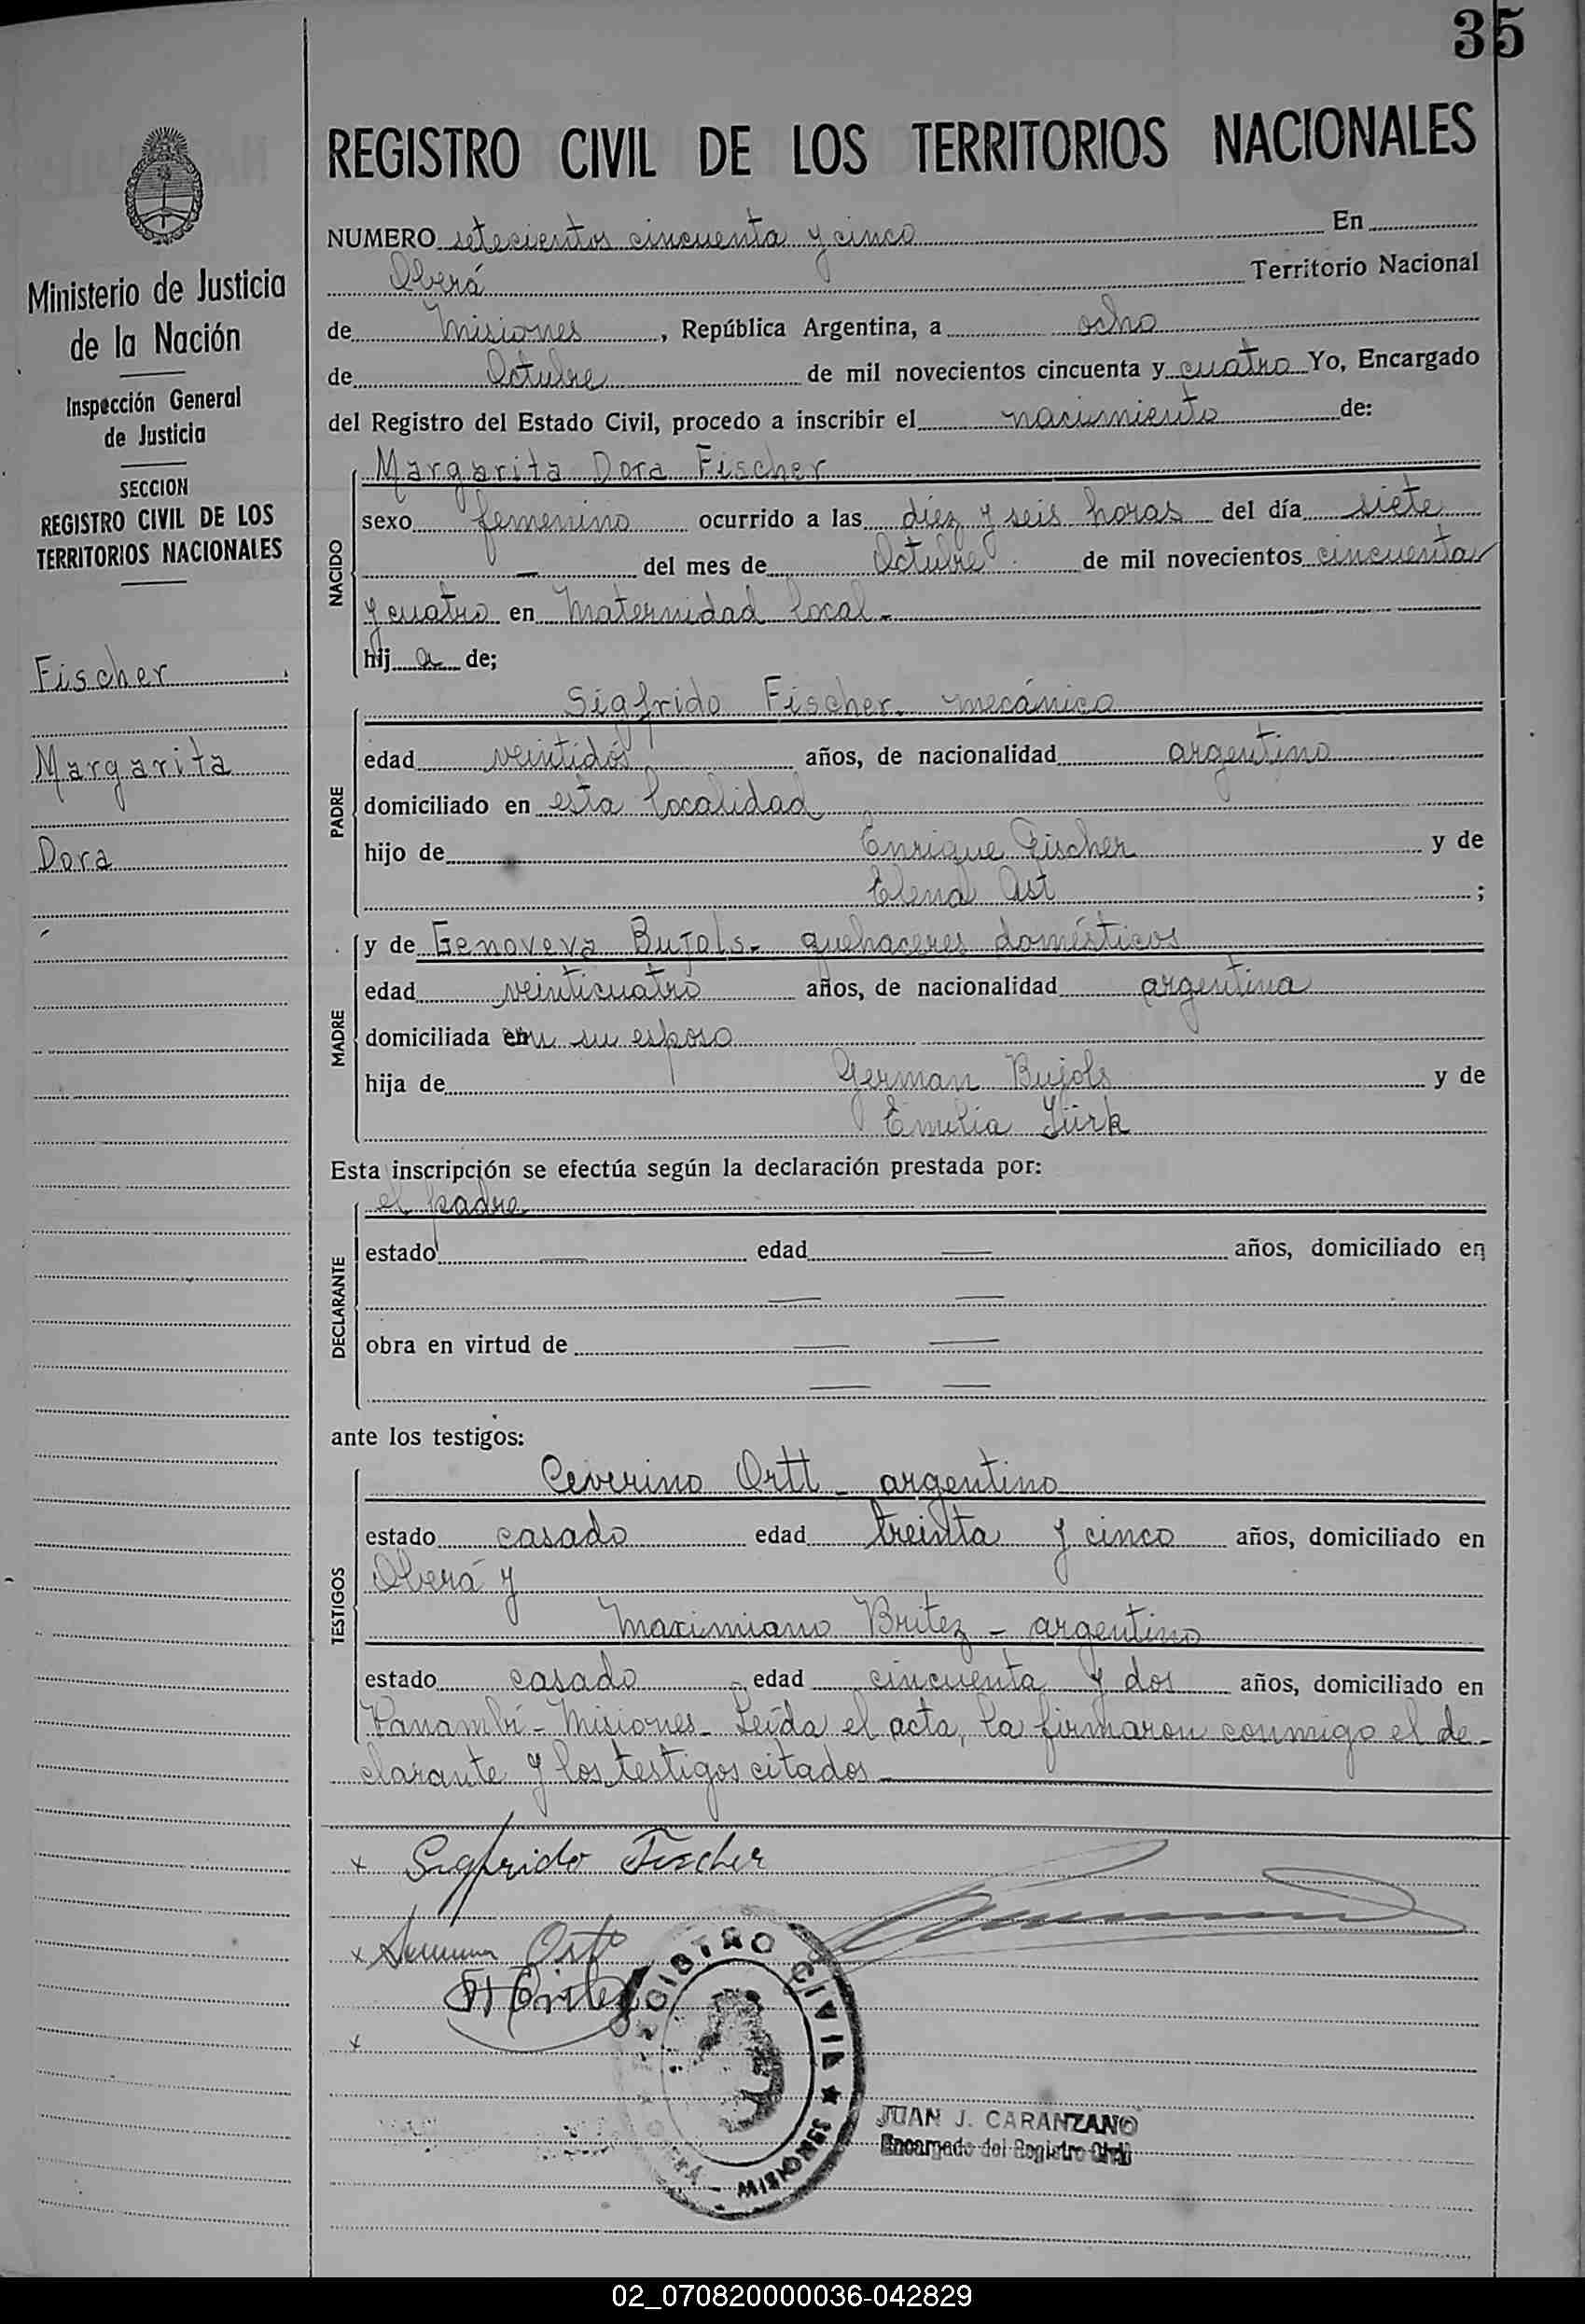 35
REGISTRO CIVIL DE LOS TERRITORIOS NACIONALES
Ministerio de Justicia
de la Nación
Inspección General
de Justicia
SECCION
REGISTRO CIVIL DE LOS
TERRITORIOS NACIONALES
Fischer
Margarita
Dora
NUMERO setecientos cincuenta y cinco En
Oberá Territorio Nacional
de Misiones, República Argentina, a ocho
de Octubre de mil novecientos cincuenta y cuatro Yo, Encargado
del Registro del Estado Civil, procedo a inscribir el nacimiento de:
NACIDO
Margarita Dora Fischer
sexo femenino ocurrido a las diez y seis horas del día siete
— del mes de Octubre de mil novecientos cincuenta
y cuatro en Maternidad local.-
hij a de;
PADRE
Sigfrido Fischer- mecánico
edad veintidós años, de nacionalidad argentino
domiciliado en esta localidad
hijo de Enrique Fischer y de
Elena Ast ;
MADRE
y de Genoveva Bujols.- quehaceres domésticos
edad veinticuatro años, de nacionalidad argentina
domiciliada en su esposo
hija de German Bujols y de
Emilia Jürk
Esta inscripción se efectúa según la declaración prestada por:
DECLARANTE
el padre
estado — edad — años, domiciliado en
— —
obra en virtud de — —
— —
ante los testigos:
TESTIGOS
Ceverino Ortt - argentino
estado casado edad treinta y cinco años, domiciliado en
Oberá y
Maximiano Britez - argentino
estado casado edad cincuenta y dos años, domiciliado en
Panambí - Misiones - Leída el acta, la firmaron conmigo el de-
clarante y los testigos citados
x Sigfrido Fischer
x
x
REGISTRO CIVIL ★ MISIONES
JUAN J. CARANZANO
Encargado del Registro Civil
02_070820000036-042829